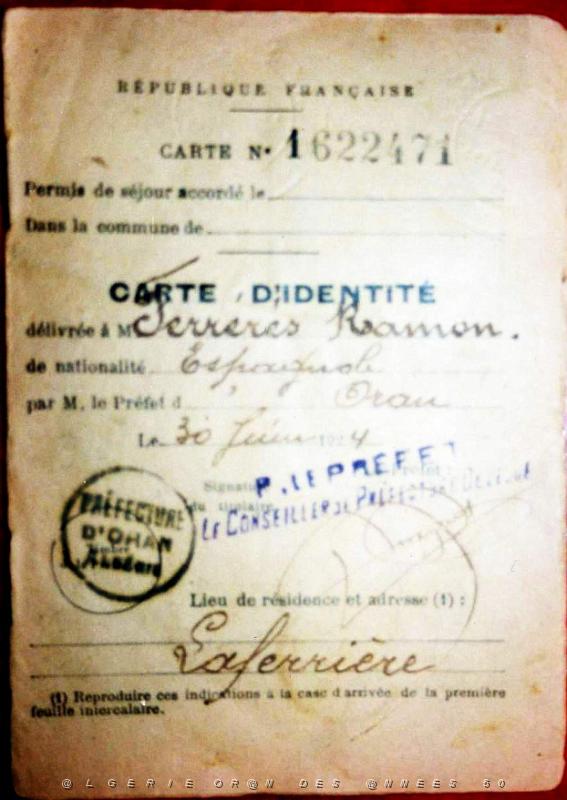 RÉPUBLIQUE FRANÇAISE
CARTE N° 1622471
Permis de séjour accordé le
Dans la commune de
CARTE D'IDENTITÉ
délivrée à M Ferrerès Ramon.
de nationalité Espagnole
par M. le Préfet d Oran
Le 30 Juin 1924
Signature
du titulaire
P. LE PREFET
LE CONSEILLER DE PRÉFECTURE DÉLÉGUÉ
PRÉFECTURE
D'ORAN
Lieu de résidence et adresse (1) :
Laferrière
(1) Reproduire ces indications à la case d'arrivée de la première
feuille intercalaire.
@LGERIE OR@N DES @NNEES 50